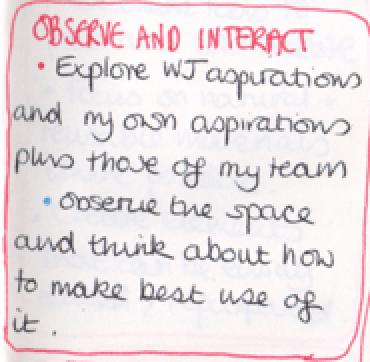 OBSERVE AND INTERACT
• Explore WJ aspirations
and my own aspirations
plus those of my team
• observe the space
and think about how
to make best use of
it.